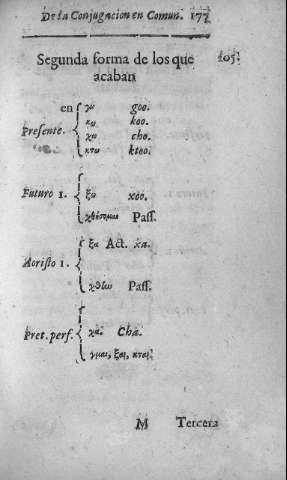 De la Conjugacion en Comun. 177
Segunda forma de los que
acaban
105.
en γω goo.
κω koo.
Presente. χω cho.
κτω kteo.
Futuro 1. ξω xoo.
χθήσομαι Pass.
ξα Act. xa.
Aoristo 1.
χθην Pass.
Pret. perf. χα. Cha.
γμαι, ξαι, κται.
M Tercera